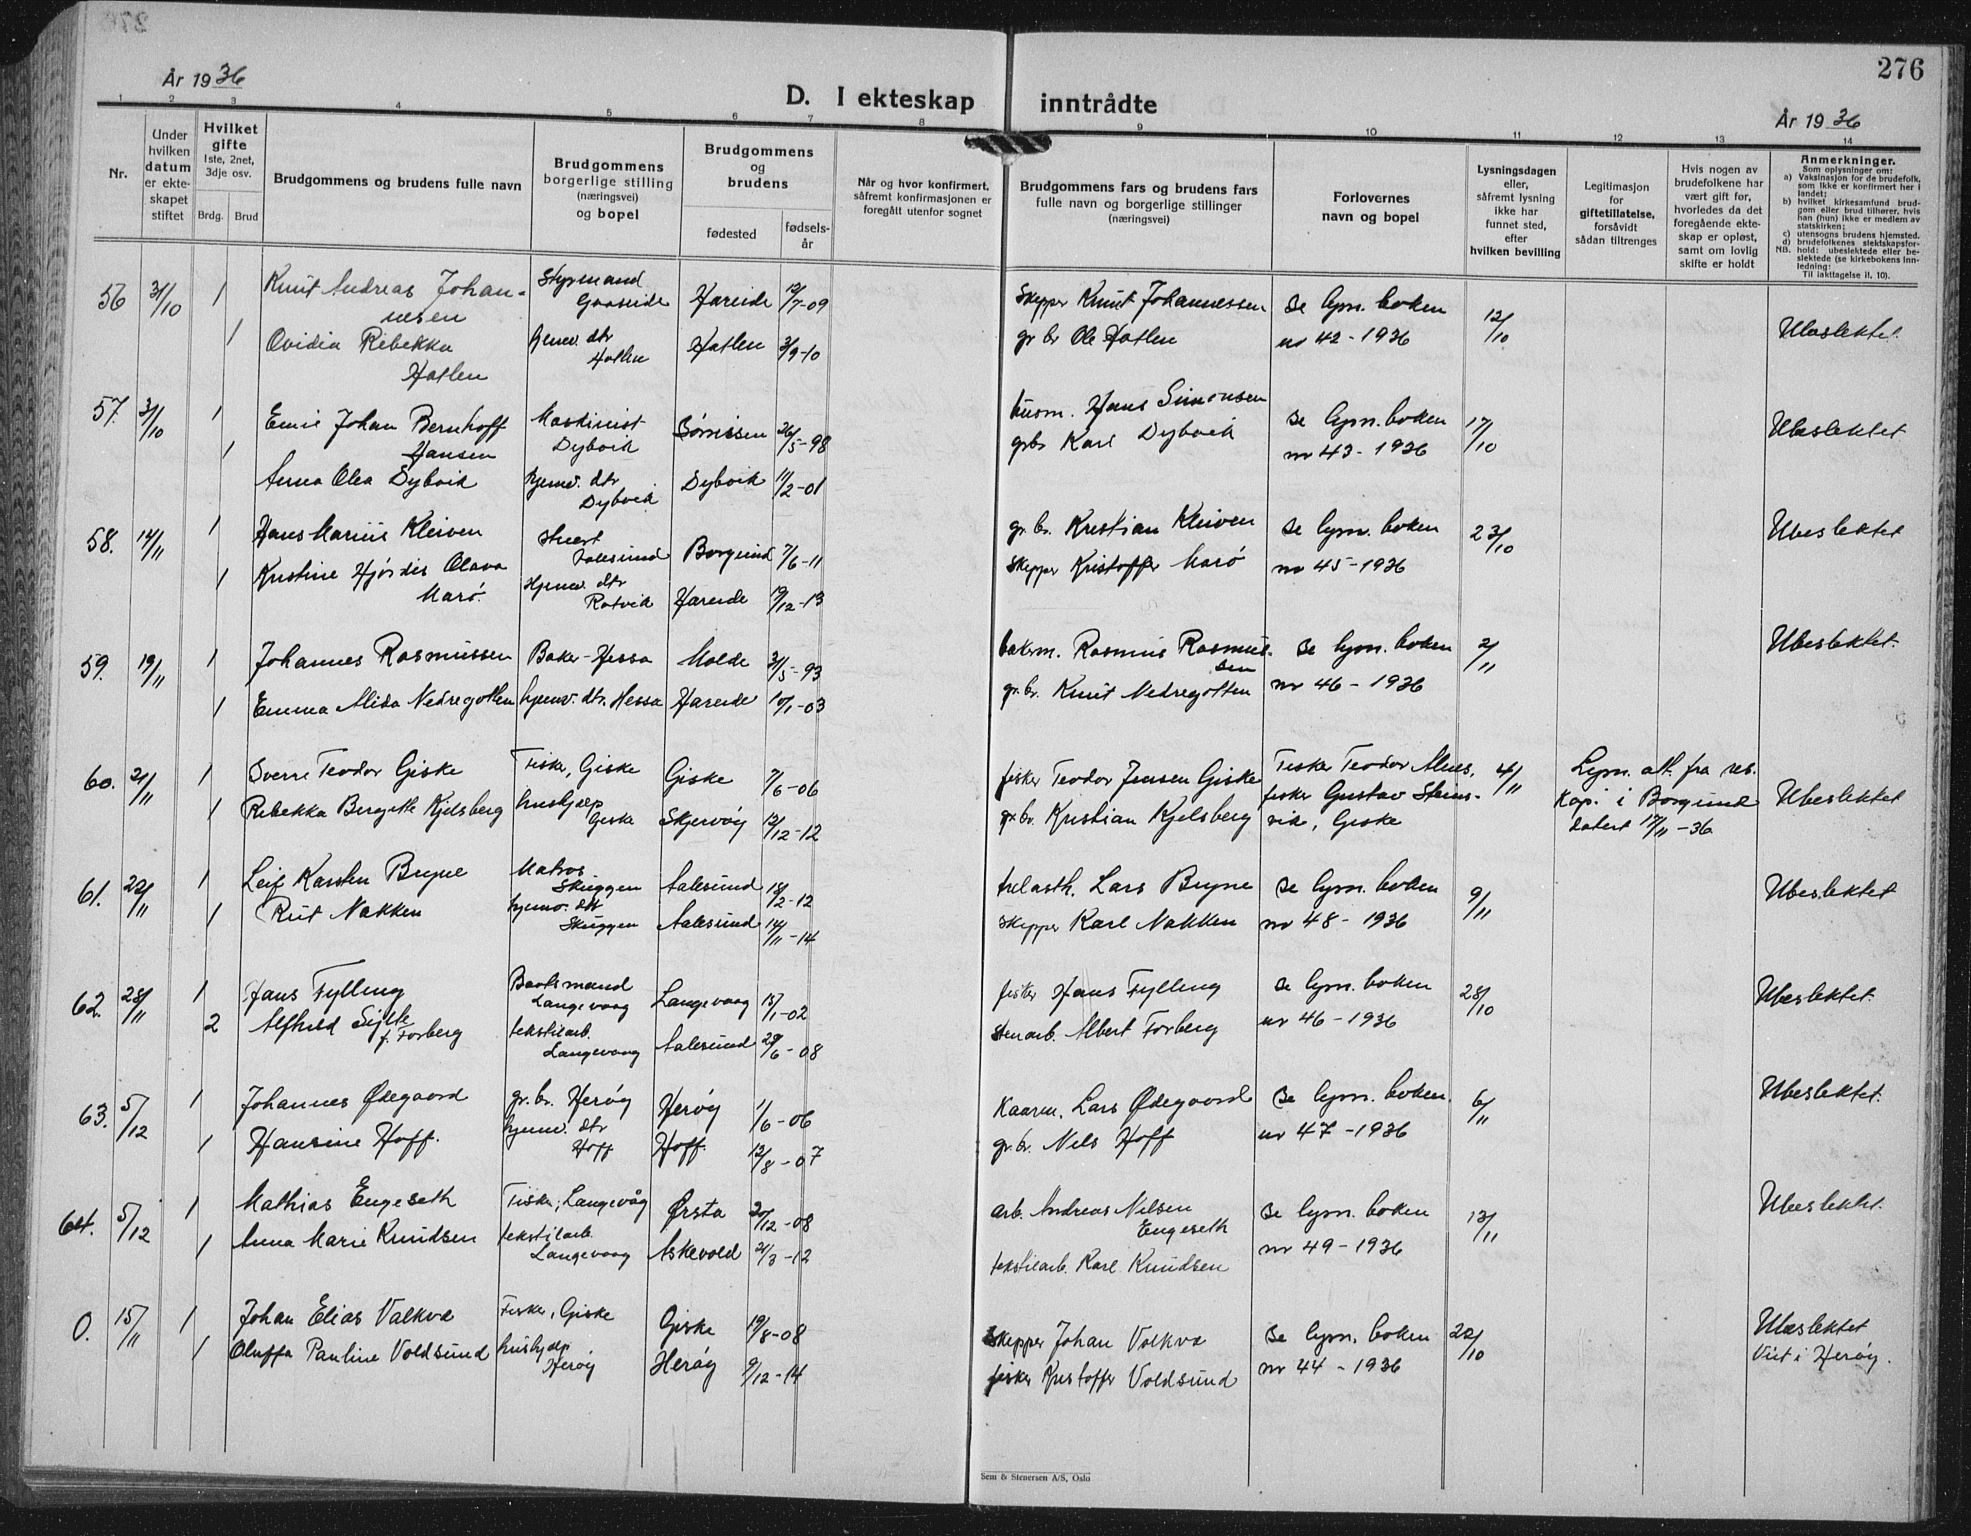 276
År 1936
D. I ekteskap inntrådte
År 1936
1 2 3 4 5 6 7 8 9 10 11 12 13 14
Nr.
Under hvilken datum er ekteskapet stiftet
Hvilket gifte 1ste, 2net, 3dje osv.
Brdg. Brud
Brudgommens og brudens fulle navn
Brudgommens borgerlige stilling (næringsvei) og bopel
Brudgommens og brudens
fødested
fødselsår
Når og hvor konfirmert, såfremt konfirmasjonen er foregått utenfor sognet
Brudgommens fars og brudens fars fulle navn og borgerlige stillinger (næringsvei)
Forlovernes navn og bopel
Lysningsdagen eller, såfremt lysning ikke har funnet sted, efter hvilken bevilling
Legitimasjon for giftetillatelse, forsåvidt sådan tiltrenges
Hvis nogen av brudefolkene har vært gift før, hvorledes da det foregående ekteskap er opløst, samt om lovlig skifte er holdt
Anmerkninger.
Som oplysninger om:
a) Vaksinasjon for de brudefolk, som ikke er konfirmert her i landet;
b) hvilket kirkesamfund brudgom eller brud tilhører, hvis han (hun) ikke er medlem av statskirken;
c) utensogns brudens hjemsted.
d) brudefolkenes slektskapsforhold: ubeslektede eller beslektede (se kirkebokens innledning:
NB. Til iakttagelse il. 10).
56 31/10 1 Knut Andreas Johannesen Styrmand Gaaseide Hareide 12/7-09 Skipper Knut Johannessen se lysn. boken 12/10 Ubeslektet.
1 Ovidia Rebekka Hatlen hjemv. dtr Hatlen Hatlen 3/9-10 gr br Ole Hatlen nr 42 - 1936
57. 31/10 1 Emil Johan Bernhoff Hansen Maskinist Dybvik 26/5-98 husm. Hans Simonsen se lysn. boken 17/10 Ubeslektet
1 Anna Olea Dybvik hjemv. dtr Dybvik Dybvik 11/2-01 grbr Karl Dybvik nr 43 - 1936
58. 14/11 1 Hans Marius Kleiven Aalesund Borgund 7/6-11 gr. br. Kristian Kleiven se lysn. boken 23/10 Ubeslektet
1 Kristine Hjørdis Olava Marø. Hjemv. dtr Rotvik Hareide 19/12-13 Skipper Kristoffer Marø nr 45 - 1936
59. 19/11 1 Johannes Rasmussen Baker - Hessa Molde 31/5-93 bakerm. Rasmus Rasmussen se lysn. boken 2/11 Ubeslektet.
1 Emma Alida Nedregotten hjemv. dtr. Hessa Hareide 10/1-03 gr. br. Knut Nedregotten nr 46 - 1936
60. 21/11 1 Sverre Teodor Giske Fisker, Giske Giske 7/6-06 fisker Teodor Jensen Giske Fisker Teodor Alnes, 4/11 Lysn. att. fra res. Kap. i Borgund datert 17/11 - 36 Ubeslektet
1 Rebekka Bergitte Kjelsberg hushjelp Giske Skjervøy 12/12-12 gr. br. Kristian Kjelsberg fisker Gustav , Giske
61. 22/11 1 Leif Karsten Bryne Matros Skuggen Aalesund 18/2-12 trelasth. Lars Bryne se lysn. boken 9/11 Ubeslektet
1 Rut Nakken hjemv. dtr Skuggen Aalesund 14/11-14 Skipper Karl Nakken nr 48 - 1936
62. 28/11 1 Hans Fylling Baatsmand Langevaag Langevaag 15/1-02 fisker Hans Fylling se lysn. boken 28/10 Ubeslektet.
2 Alfhild Sylte f. Forberg tekstilarb. Langevaag Aalesund 29/6-08 Stenarb. Albert Forberg nr 46 - 1936
63. 5/12 1 Johannes Ødegaard gr. br. Herøy Herøy 1/6-06 Kaarm. Lars Ødegaard se lysn. boken. 6/11 Ubeslektet.
1 Hansine Hoff. hjemv. dtr Hoff Hoff. 12/8-07 gr. br. Nils Hoff nr 47 - 1936
64. 5/12 1 Mathias Engeseth Fisker, Langevåg Ørsta 20/12-08 arb. Andreas Nilsen Engeseth se lysn. boken 13/11 Ubeslektet.
1 Anna Marie Knudsen tekstilarb. Langevaag Askevold 21/3-12 tekstilarb. Karl Knudsen nr 49 - 1936
0. 15/11 1 Johan Elias Valkva Fisker, Giske Giske 19/8-08 Skipper Johan Valkva se lysn. boken 22/10 Ubeslektet
1 Oluffa Pauline Voldsund hushjelp Herøy Herøy 9/12-14 fisker Kristoffer Voldsund nr 44 - 1936 Viet i Herøy.
Sem & Stenersen A/S, Oslo